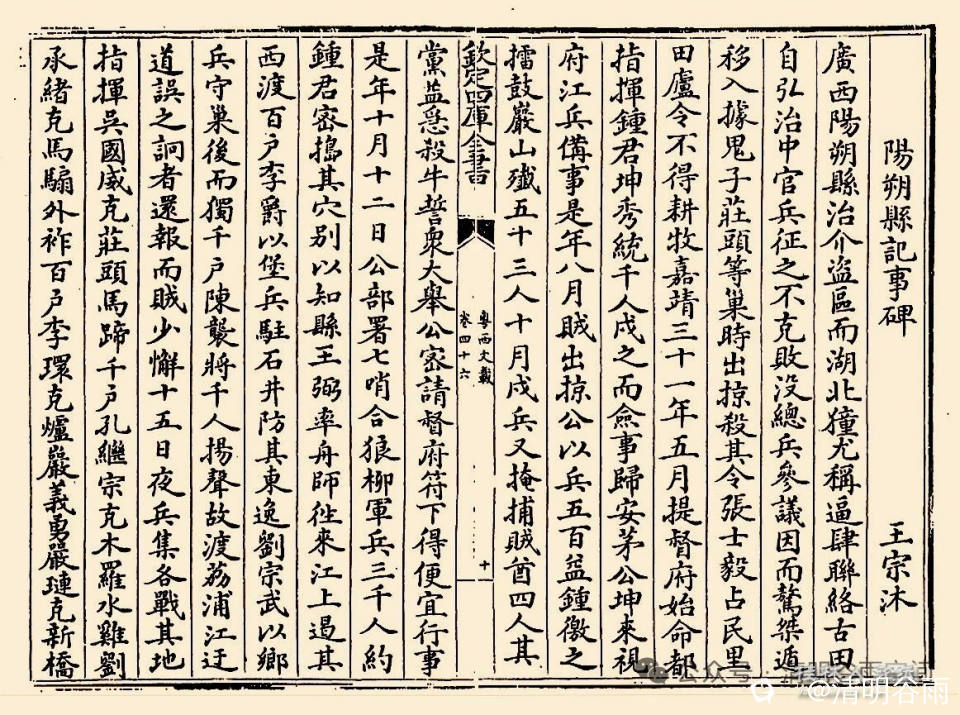 陽朔縣記事碑
王宗沐
廣西陽朔縣治介盜區而湖北獞尤稱逼肆聯絡古田
自弘治中官兵征之不克敗没總兵參議因而驁桀遁
移入據鬼子莊頭等巢時出掠殺其令張士毅占民里
田廬令不得耕牧嘉靖三十一年五月提督府始命都
指揮鍾君坤秀統千人戍之而僉事歸安茅公坤來視
府江兵備事是年八月賊出掠公以兵五百益鍾徼之
擂鼓巖山殲五十三人十月戍兵又掩捕賊酋四人其
欽定四庫全書
粵西文載
卷四十六
十
黨益懸殺牛誓衆大舉公密請督府符下得便宜行事
是年十月十二日公部署七哨合狼柳軍兵三千人約
鍾君密搗其穴别以知縣王弼率舟師徃來江上遏其
西渡百户李爵以堡兵駐石井防其東逸劉宗武以鄉
兵守巢後而獨千户陳襲將千人揚聲故渡荔浦江迂
道誤之詗者還報而賊少懈十五日夜兵集各戰其地
指揮吳國威克莊頭馬蹄千户孔繼宗克木羅水雞劉
承緒克馬騸外祚百户李環克爐巖義勇嚴璉克新橋
公众号
@清明谷雨